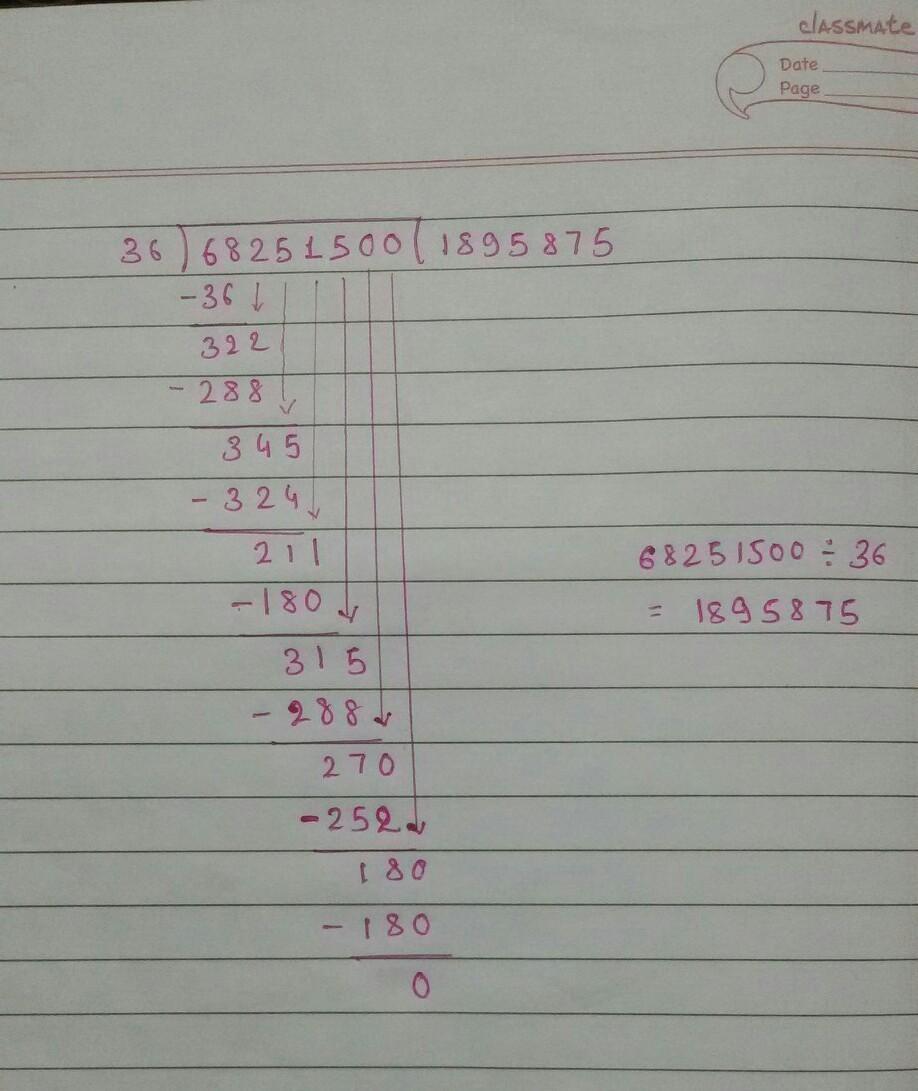 classmate
Date
Page
36 ) 68251500 ( 1895875
-36
322
- 288
345
- 324
211
-180
315
- 288
270
-252
180
- 180
0
68251500 ÷ 36
= 1895875